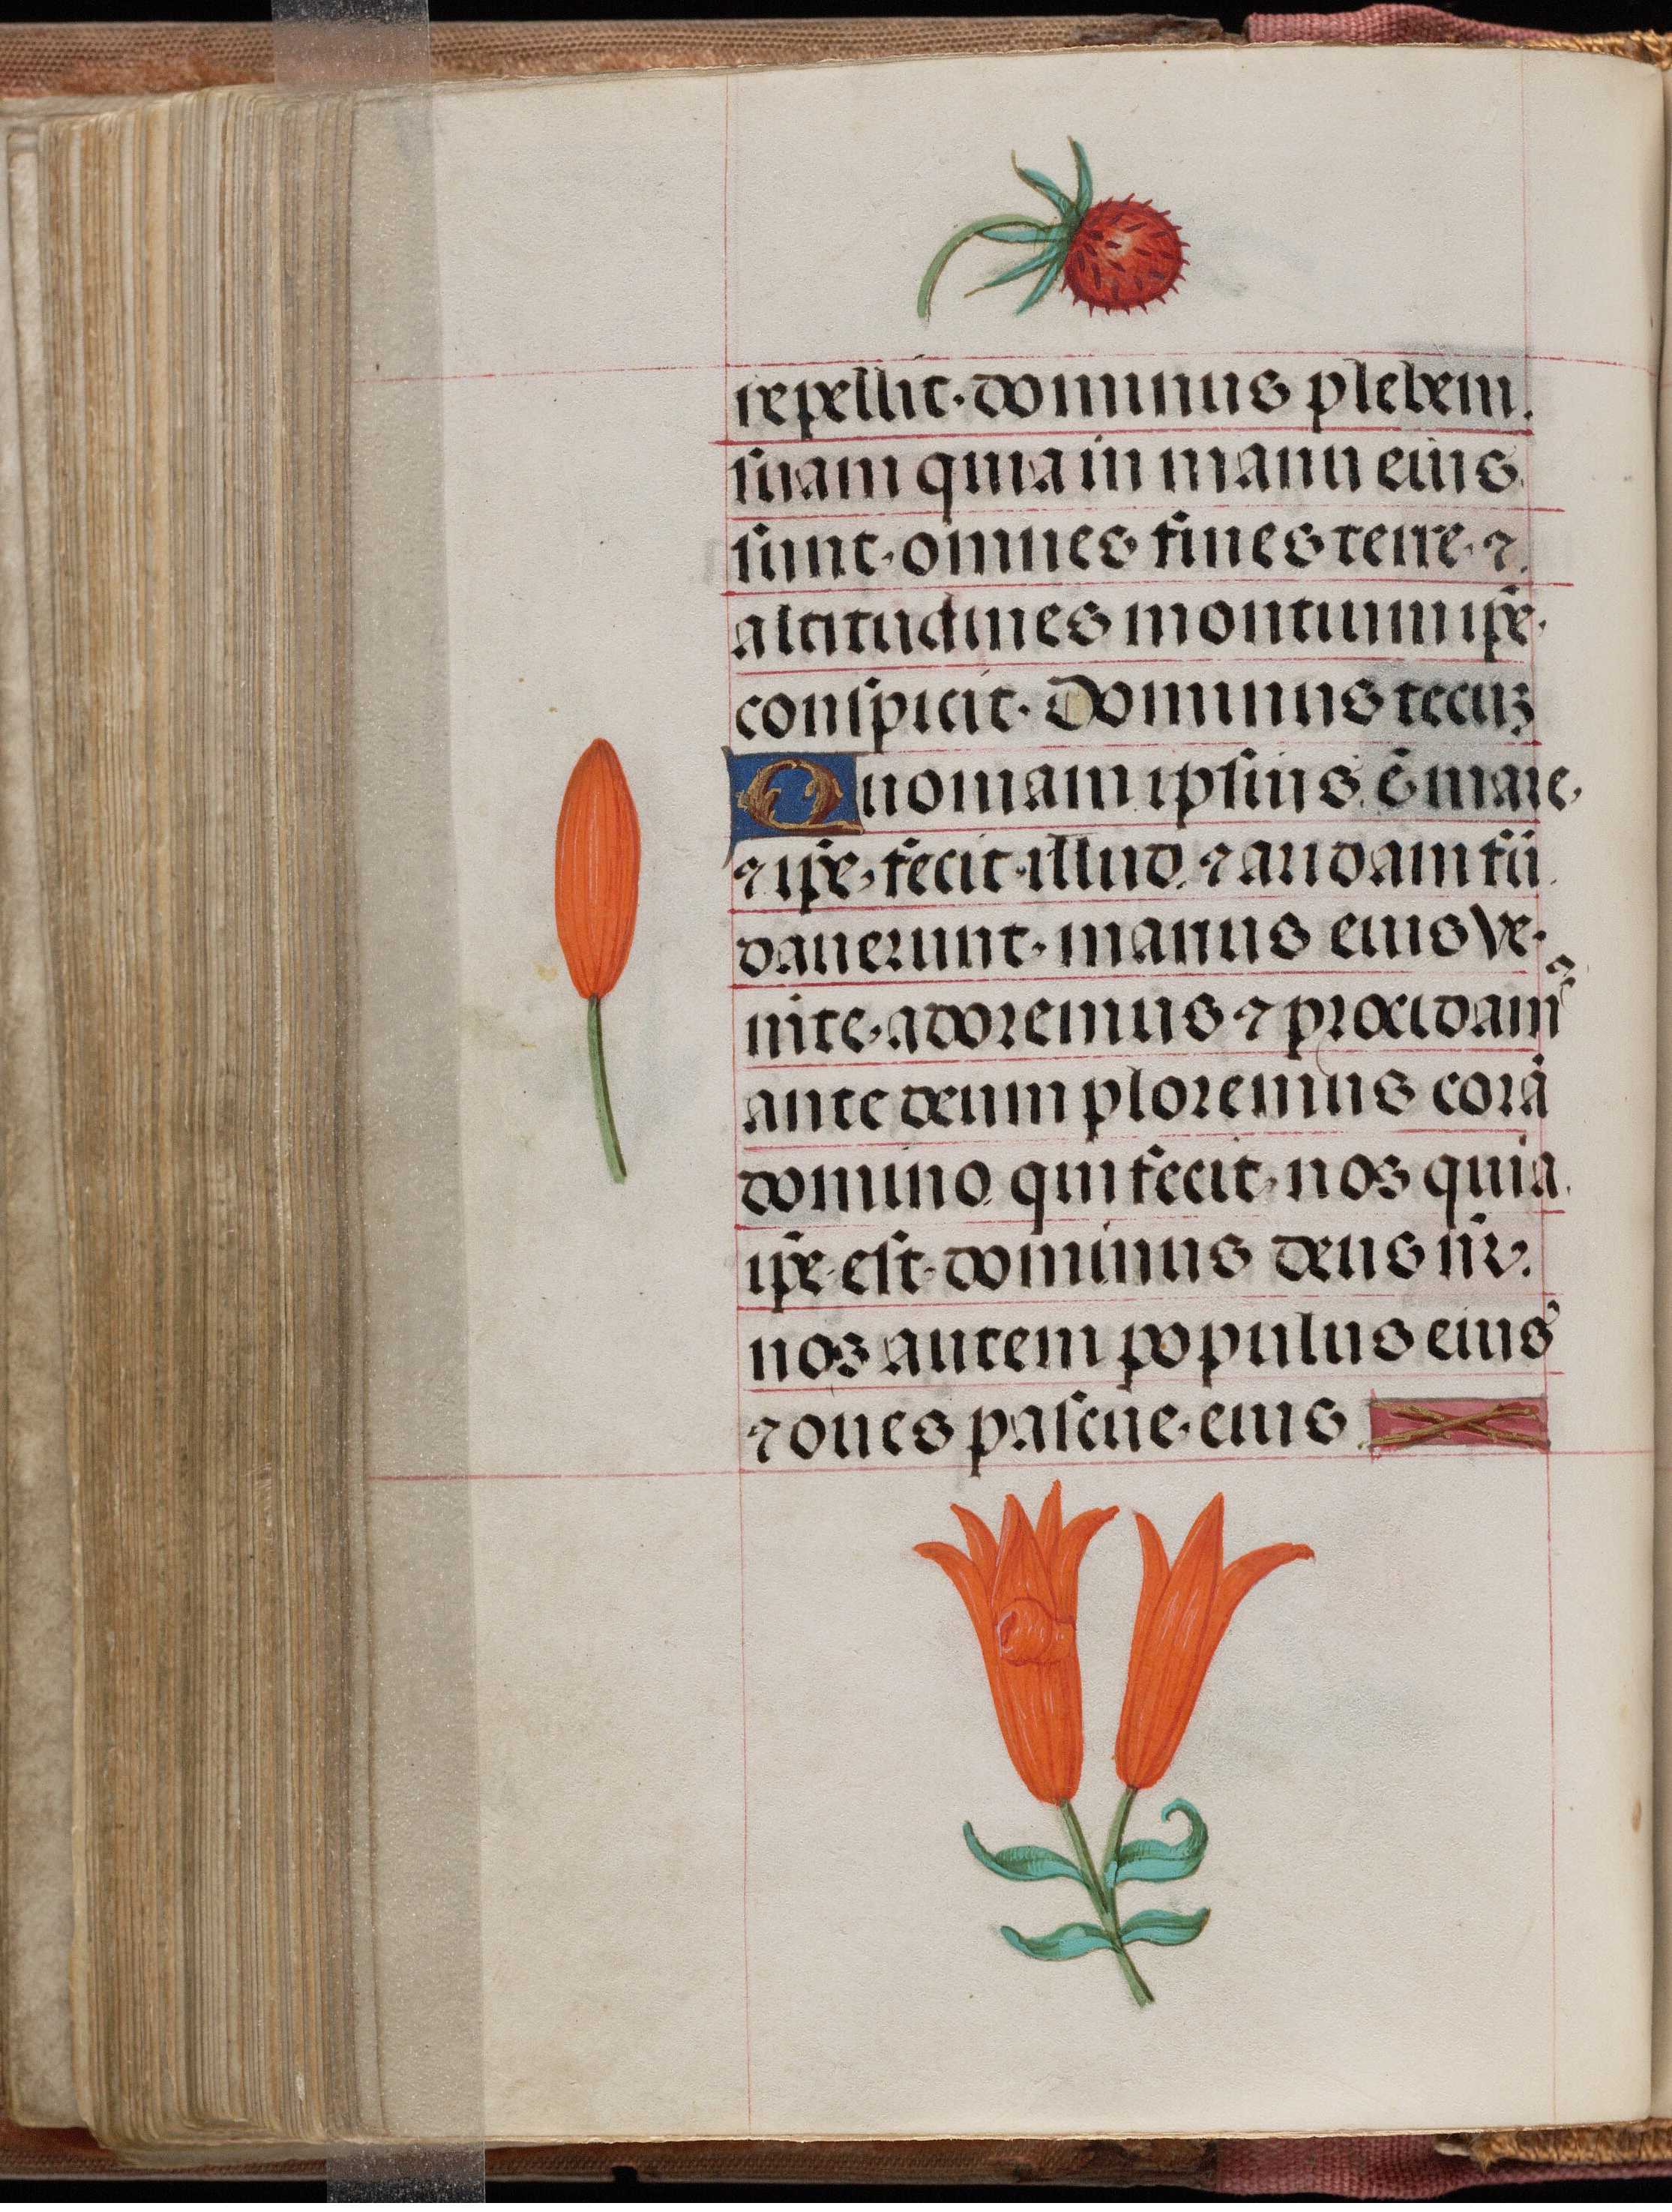 repellit dominus plebem
suam quia in manu eius
sunt omnes fines terre ⁊
altitudines montium ip̄e
conspicit. Dominus tecuꝫ
Quoniam ipsius ē mare
⁊ ip̄e fecit illud ⁊ aridam fū
dauerunt manus eius Ve
nite adoremus ⁊ procidamꝰ
ante deum ploremus corā
domino qui fecit nos quia
ip̄e est dominus deus nr̄
nos autem populus eius
⁊ oues pascue eius